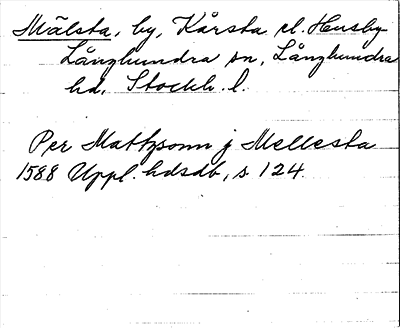 Mälsta, by, Kårsta el. Husby
Långhundra sn, Långhundra
hd, Stockh. l.
Per Mattzsonn j Mellesta
1588 Uppl. hdsdb, s 124.